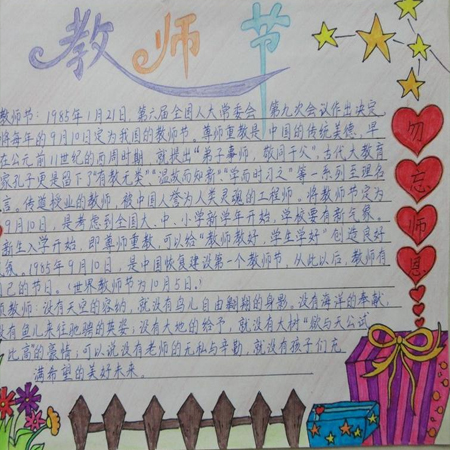 教师节
教师节：1985年1月21日，第六届全国人大常委会 第九次会议作出决定
将每年的9月10日定为我国的教师节。尊师重教是中国的传统美德，早
在公元前11世纪的西周时期，就提出"弟子事师，敬同于父"，古代大教育
家孔子更是留下了"有教无类""温故而知新""学而时习之"等一系列至理名
言。传道授业的教师，被中国人誉为人类灵魂的工程师。将教师节定为
9月10日，是考虑到全国大、中、小学新学年开始，学校要有新气象。
新生入学开始，即尊师重教，可以给"教师教好，学生学好"创造良好
气氛。1985年9月10日，是中国恢复建设第一个教师节，从此以后，教师有
自己的节日。（世界教师节为10月5日。）
教师：没有天空的容纳，就没有鸟儿自由翱翔的身影；没有海洋的奉献，
没有鱼儿来往驰候的英姿；没有大地的给予，就没有大树"欲与天公试
比高"的豪情；可以说没有老师的无私与辛勤，就没有孩子们充
满希望的美好未来。
勿
忘
师
恩